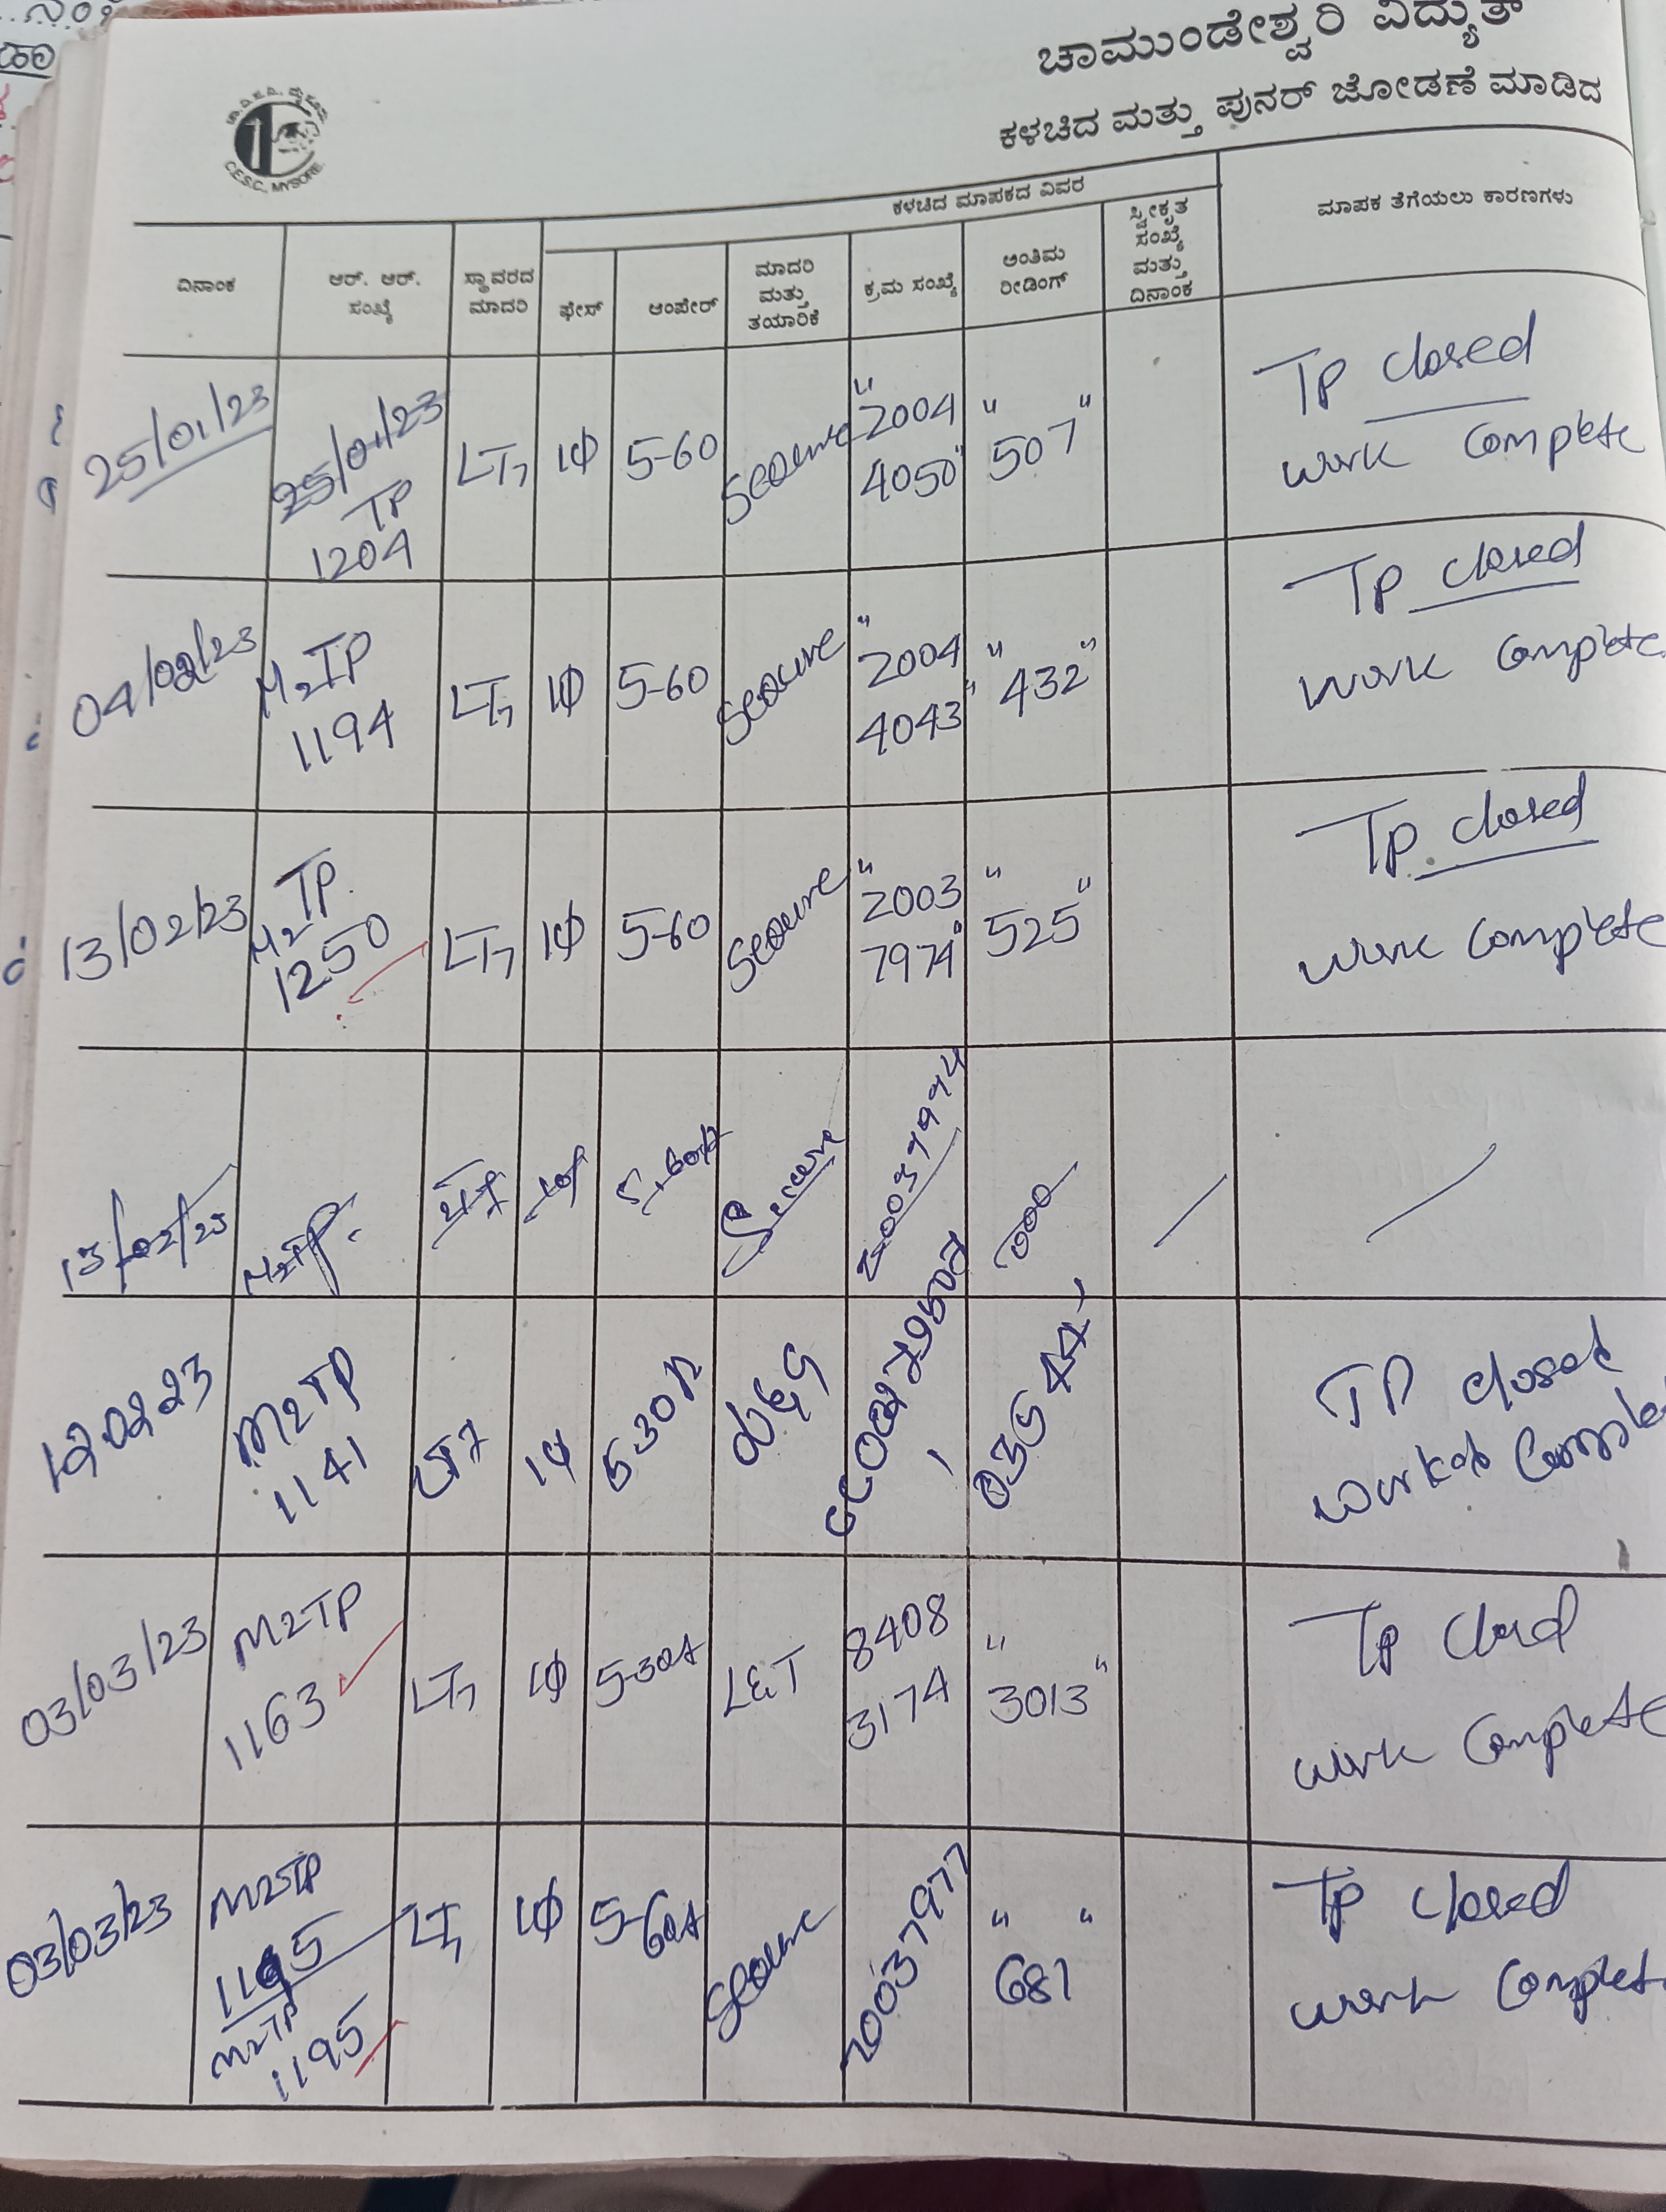 ಚಾಮುಂಡೇಶ್ವರಿ ವಿದ್ಯುತ್
ಕಳಚಿದ ಮತ್ತು ಪುನರ್ ಜೋಡಣೆ ಮಾಡಿದ
C.E.S.C., MYSORE
ಕಳಚಿದ ಮಾಪಕದ ವಿವರ
ದಿನಾಂಕ
ಆರ್. ಆರ್.
ಸಂಖ್ಯೆ
ಸ್ಥಾವರದ
ಮಾದರಿ
ಫೇಸ್
ಆಂಪೇರ್
ಮಾದರಿ
ಮತ್ತು
ತಯಾರಿಕೆ
ಕ್ರಮ ಸಂಖ್ಯೆ
ಅಂತಿಮ
ರೀಡಿಂಗ್
ಸ್ವೀಕೃತ
ಸಂಖ್ಯೆ
ಮತ್ತು
ದಿನಾಂಕ
ಮಾಪಕ ತೆಗೆಯಲು ಕಾರಣಗಳು
25/01/23
25/01/23
TP
1204
LT7
1Φ
5-60
secure
"2004
4050"
"507"
TP closed
work complete
04/02/23
M2TP
1194
LT7
1Φ
5-60
secure
"2004
4043"
"432"
TP closed
work complete
13/02/23
TP
M2
1250
LT7
1Φ
5-60
secure
"2003
7974"
"525"
TP closed
work complete
13/02/23
M2TP
LT7
1Φ
5-60A
Secure
20037974
000
M2TP
1141
LT7
1Φ
5-30A
TP closed
03/03/23
M2TP
1163
LT7
1Φ
5-30A
L&T
8408
3174
"3013"
TP closed
work complete
03/03/23
M2TP
1195
M2TP
1195
LT7
1Φ
5-60A
secure
20037977
" "
687
TP closed
work complet